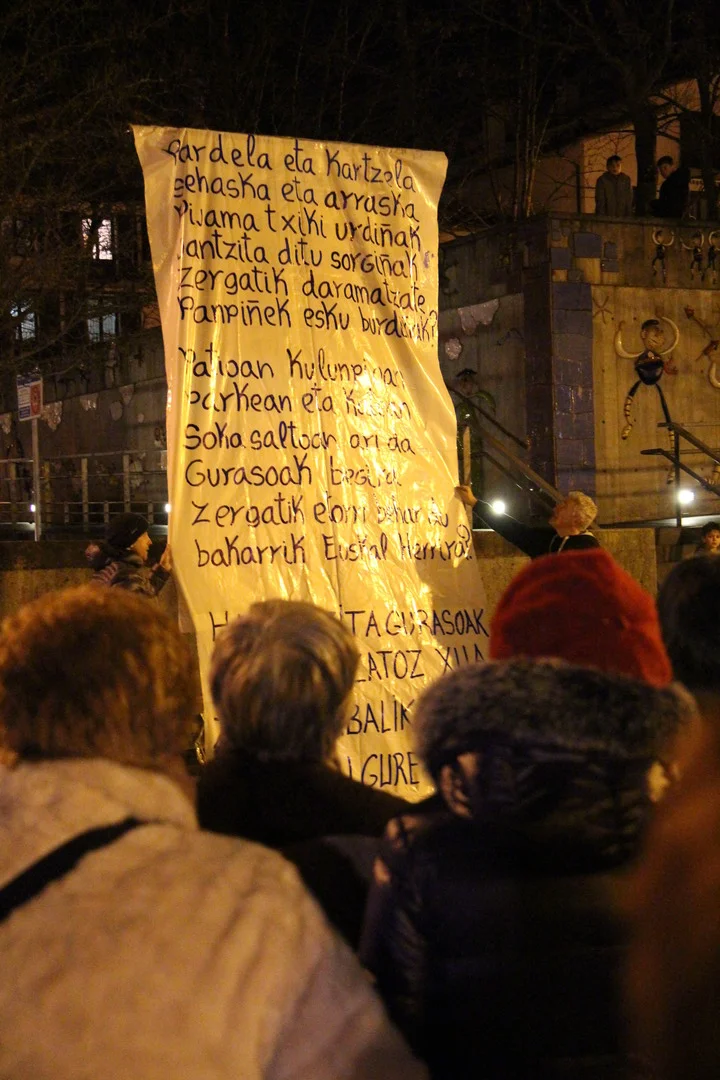 Fardela eta Kartzela
sehaska eta arraska
Pijama txiki urdiñak
Jantzita ditu sorgiñak
Zergatik daramatzate
Panpiñek esku burdiñak?
Patioan Kulunpioan
Parkean eta Kalean
Soka saltoan ari da
Gurasoak begira
zergatik etorri behar du
bakarrik Euskal Herrira?
TA GURASOAK
ATOZ
BALIK
GURE